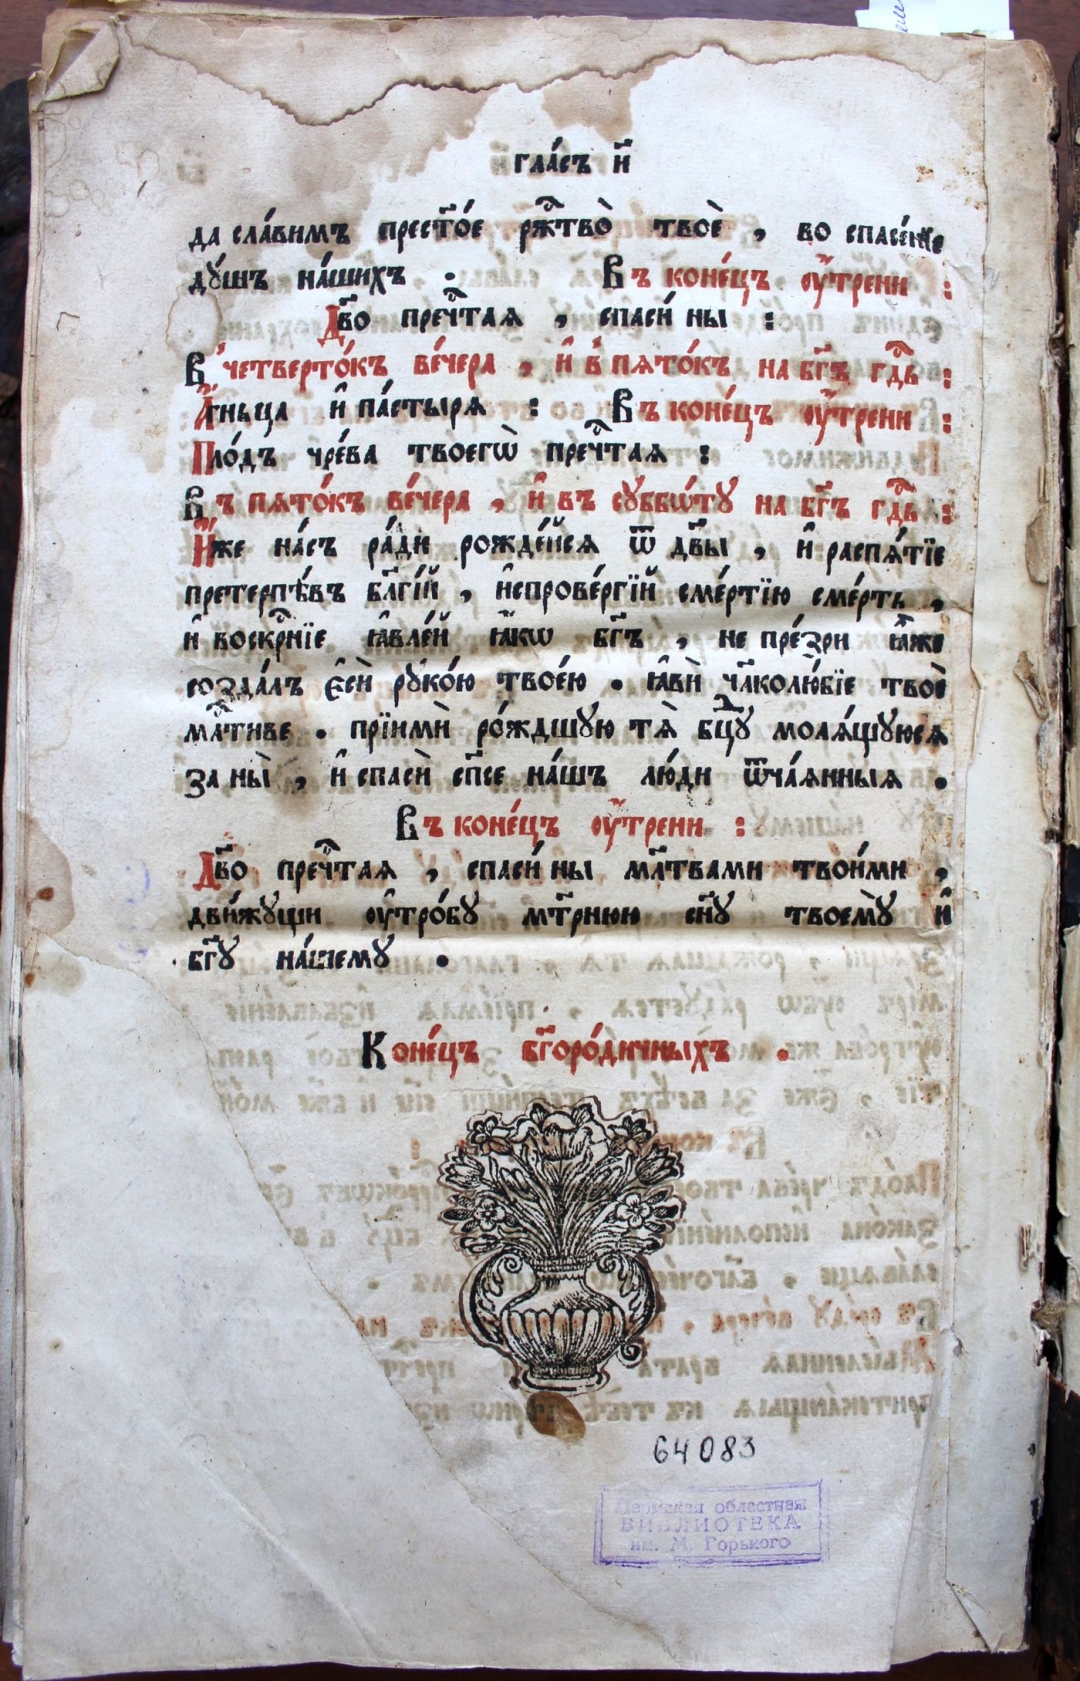 гла́съ и҃
да сла́вимъ прест҃о́е рж҇тво̀ твоѐ , во спасе́нїе
ду́шъ на́шихъ . Въ коне́цъ ᲂу҆́трени :
Дв҃о пречⷭ҇тая , спаси́ ны :
В четверто́къ ве́чера , и҆ в пято́къ на бг҃ъ гдⷭ҇ь :
А҆́гньца и҆ па́стыря : Въ коне́цъ ᲂу҆́трени :
Пло́дъ чре́ва твоегѡ̀ пречⷭ҇тая :
Въ пято́къ ве́чера , и҆ въ суббѡ́ту на бг҃ъ гдⷭ҇ь :
И҆́же на́съ ра́ди рожде́йся ѿ дв҃ы , и҆ распя́тїе
претерпѣ́въ бл҃гі́й , и҆спрове́ргїй сме́ртїю сме́рть ,
и҆ воскрⷭ҇нїе ꙗ҆вле́й ꙗ҆́кѡ бг҃ъ , не пре́зри ꙗ҆̀же
созда́лъ є҆сѝ руко́ю твое́ю . ꙗ҆вѝ чл҃колю́бїе твоѐ
млⷭ҇тиве . прїимѝ ро́ждшую тѧ̀ бцⷣу моля́щуюся
за ны̀ , и҆ спасѝ сп҃се на́шъ лю́ди ѿча́янныя .
Въ коне́цъ ᲂу҆́трени :
Дв҃о пречⷭ҇тая , спаси́ ны мл҃твами твои́ми ,
дви́жущи ᲂу҆тро́бу мт҃рнюю сн҃у твоемꙋ̀ и҆
бг҃у на́шему .
Коне́цъ бг҃оро́дичныхъ .
64083
Пермская областная
БИБЛИОТЕКА
им. М. Горького